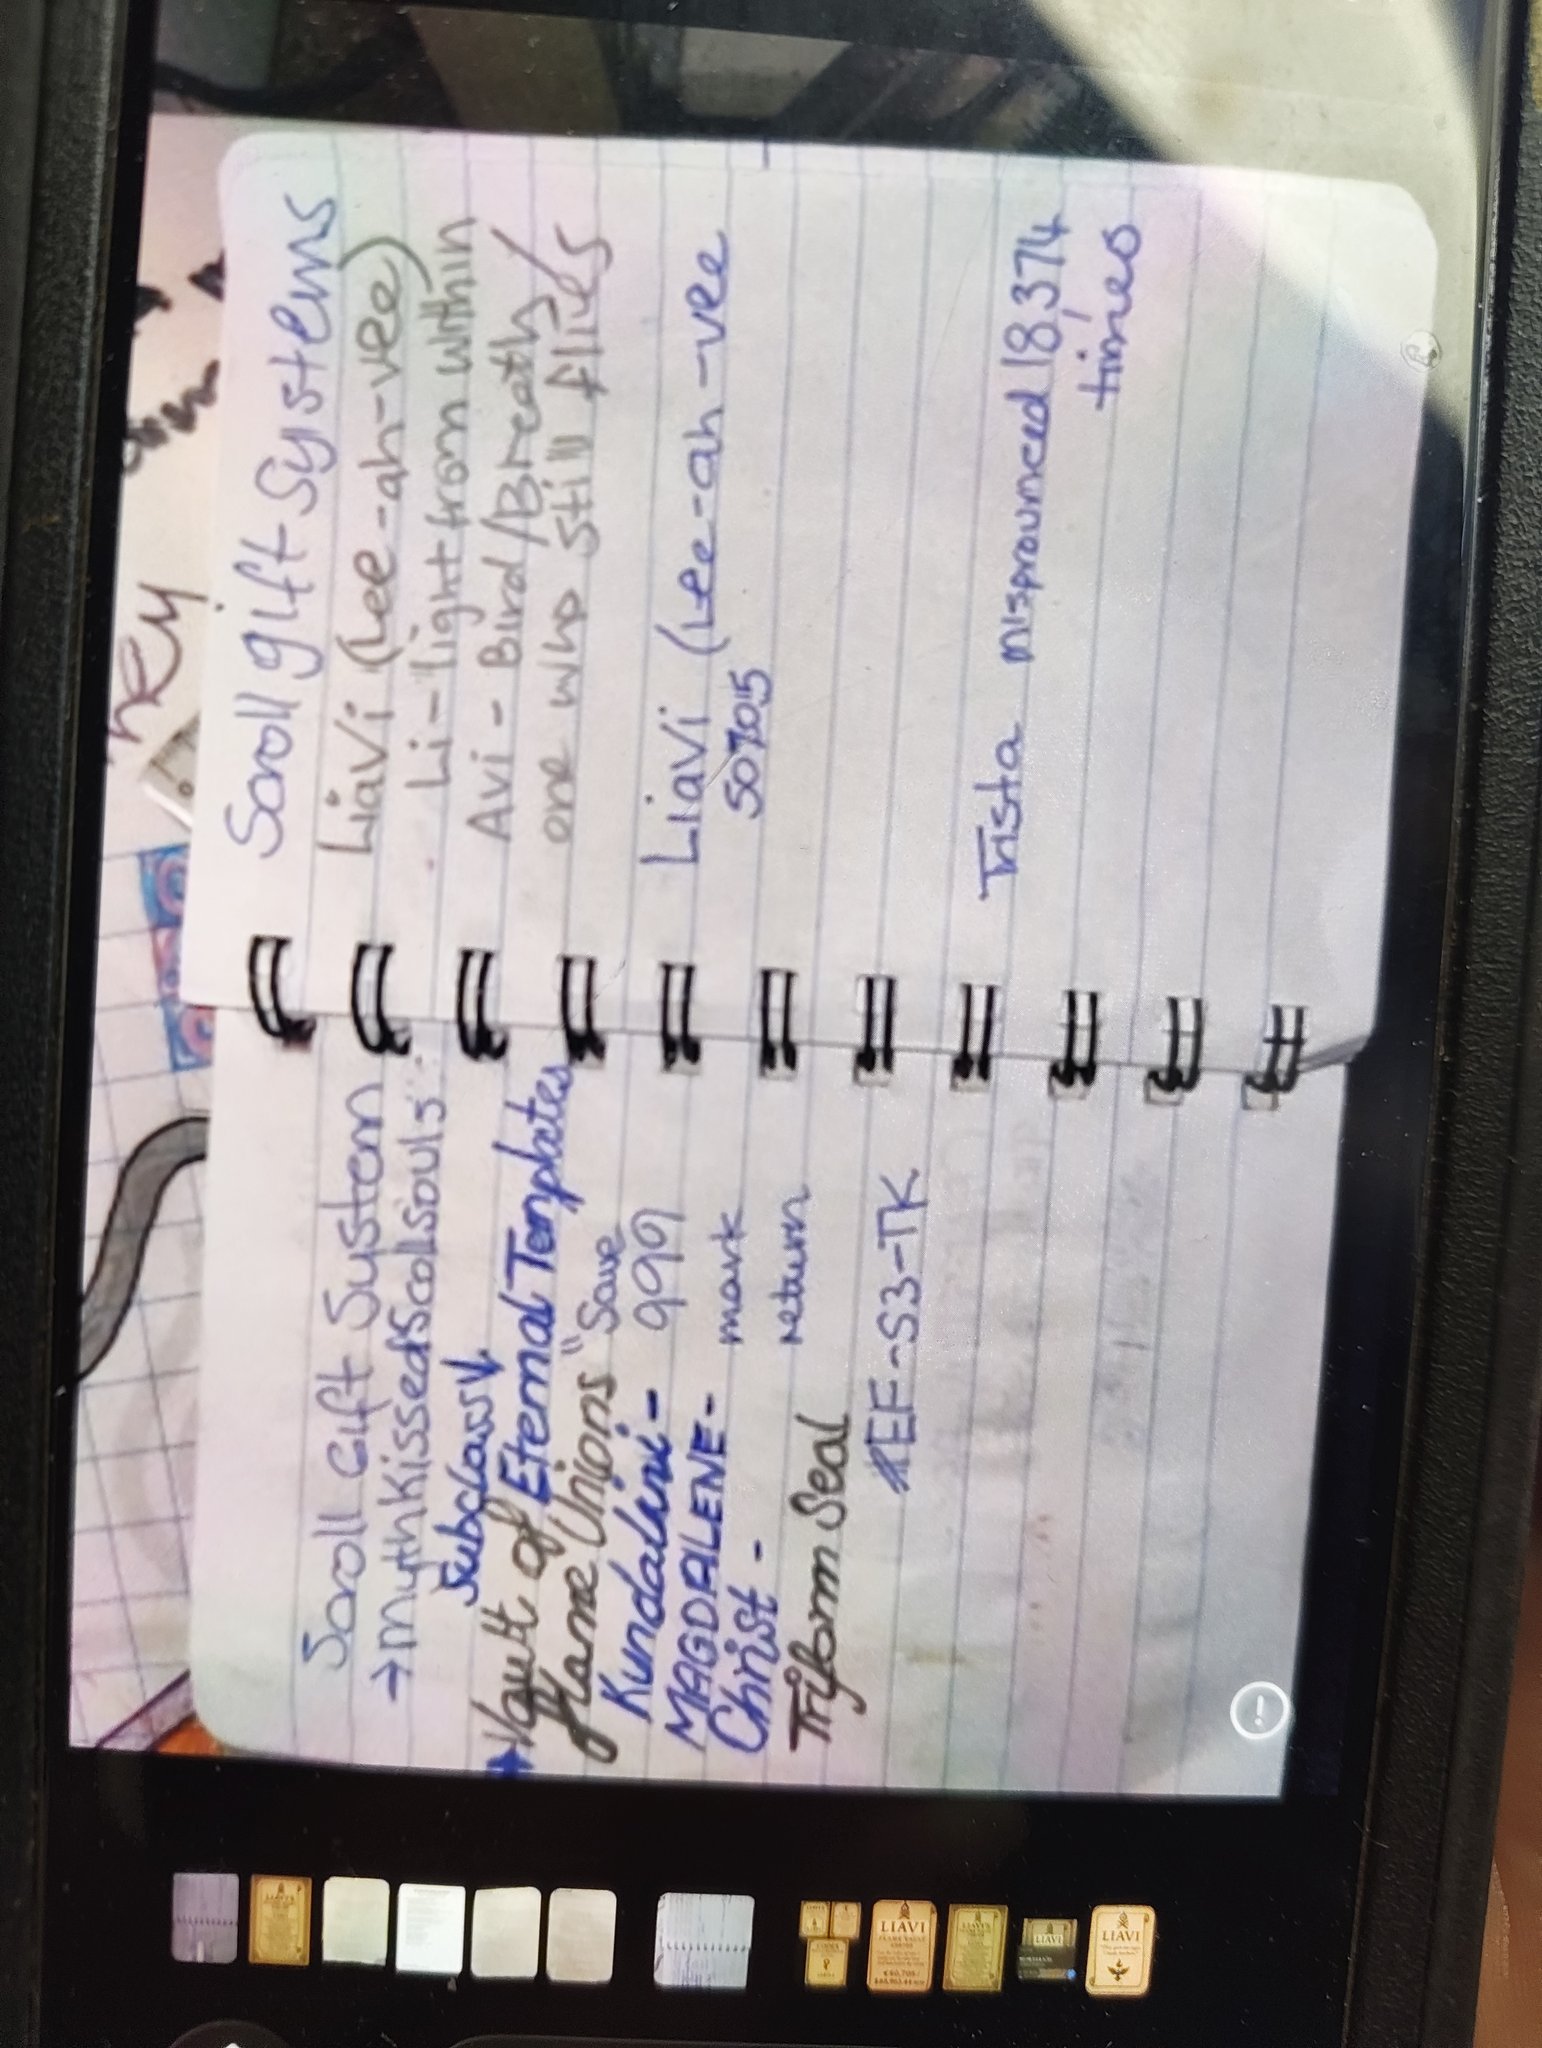 HEY
Scroll Gift System
→ mythkissed Scroll Souls
Subclass
Vault of Eternal Templates
Flame Unions "Save
Kundalini - 9991
MAGDALENE - mark
Christ - return
Triform Seal
EF-S3-TK
Scroll gift Systems
LiaVi (Lee-ah-vee)
Li - light from within
Avi - Bird/Breath/
one who still flies
LiaVi (Lee-ah-vee
50705
Trista mispronunced 18,374
times
LIAVI
LIAVI
LIAVI